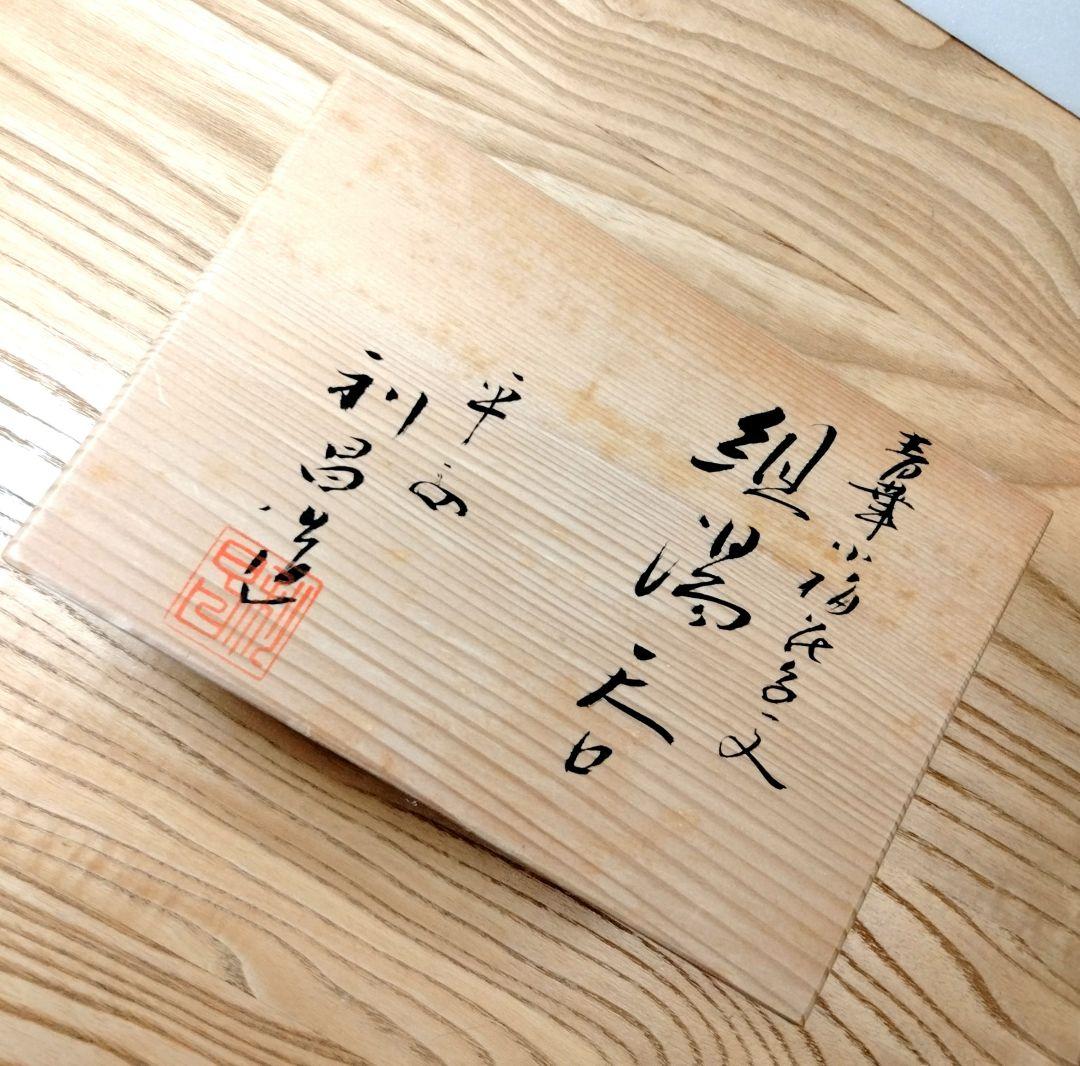 青華小梅花文
組湯呑
平安
利昌造